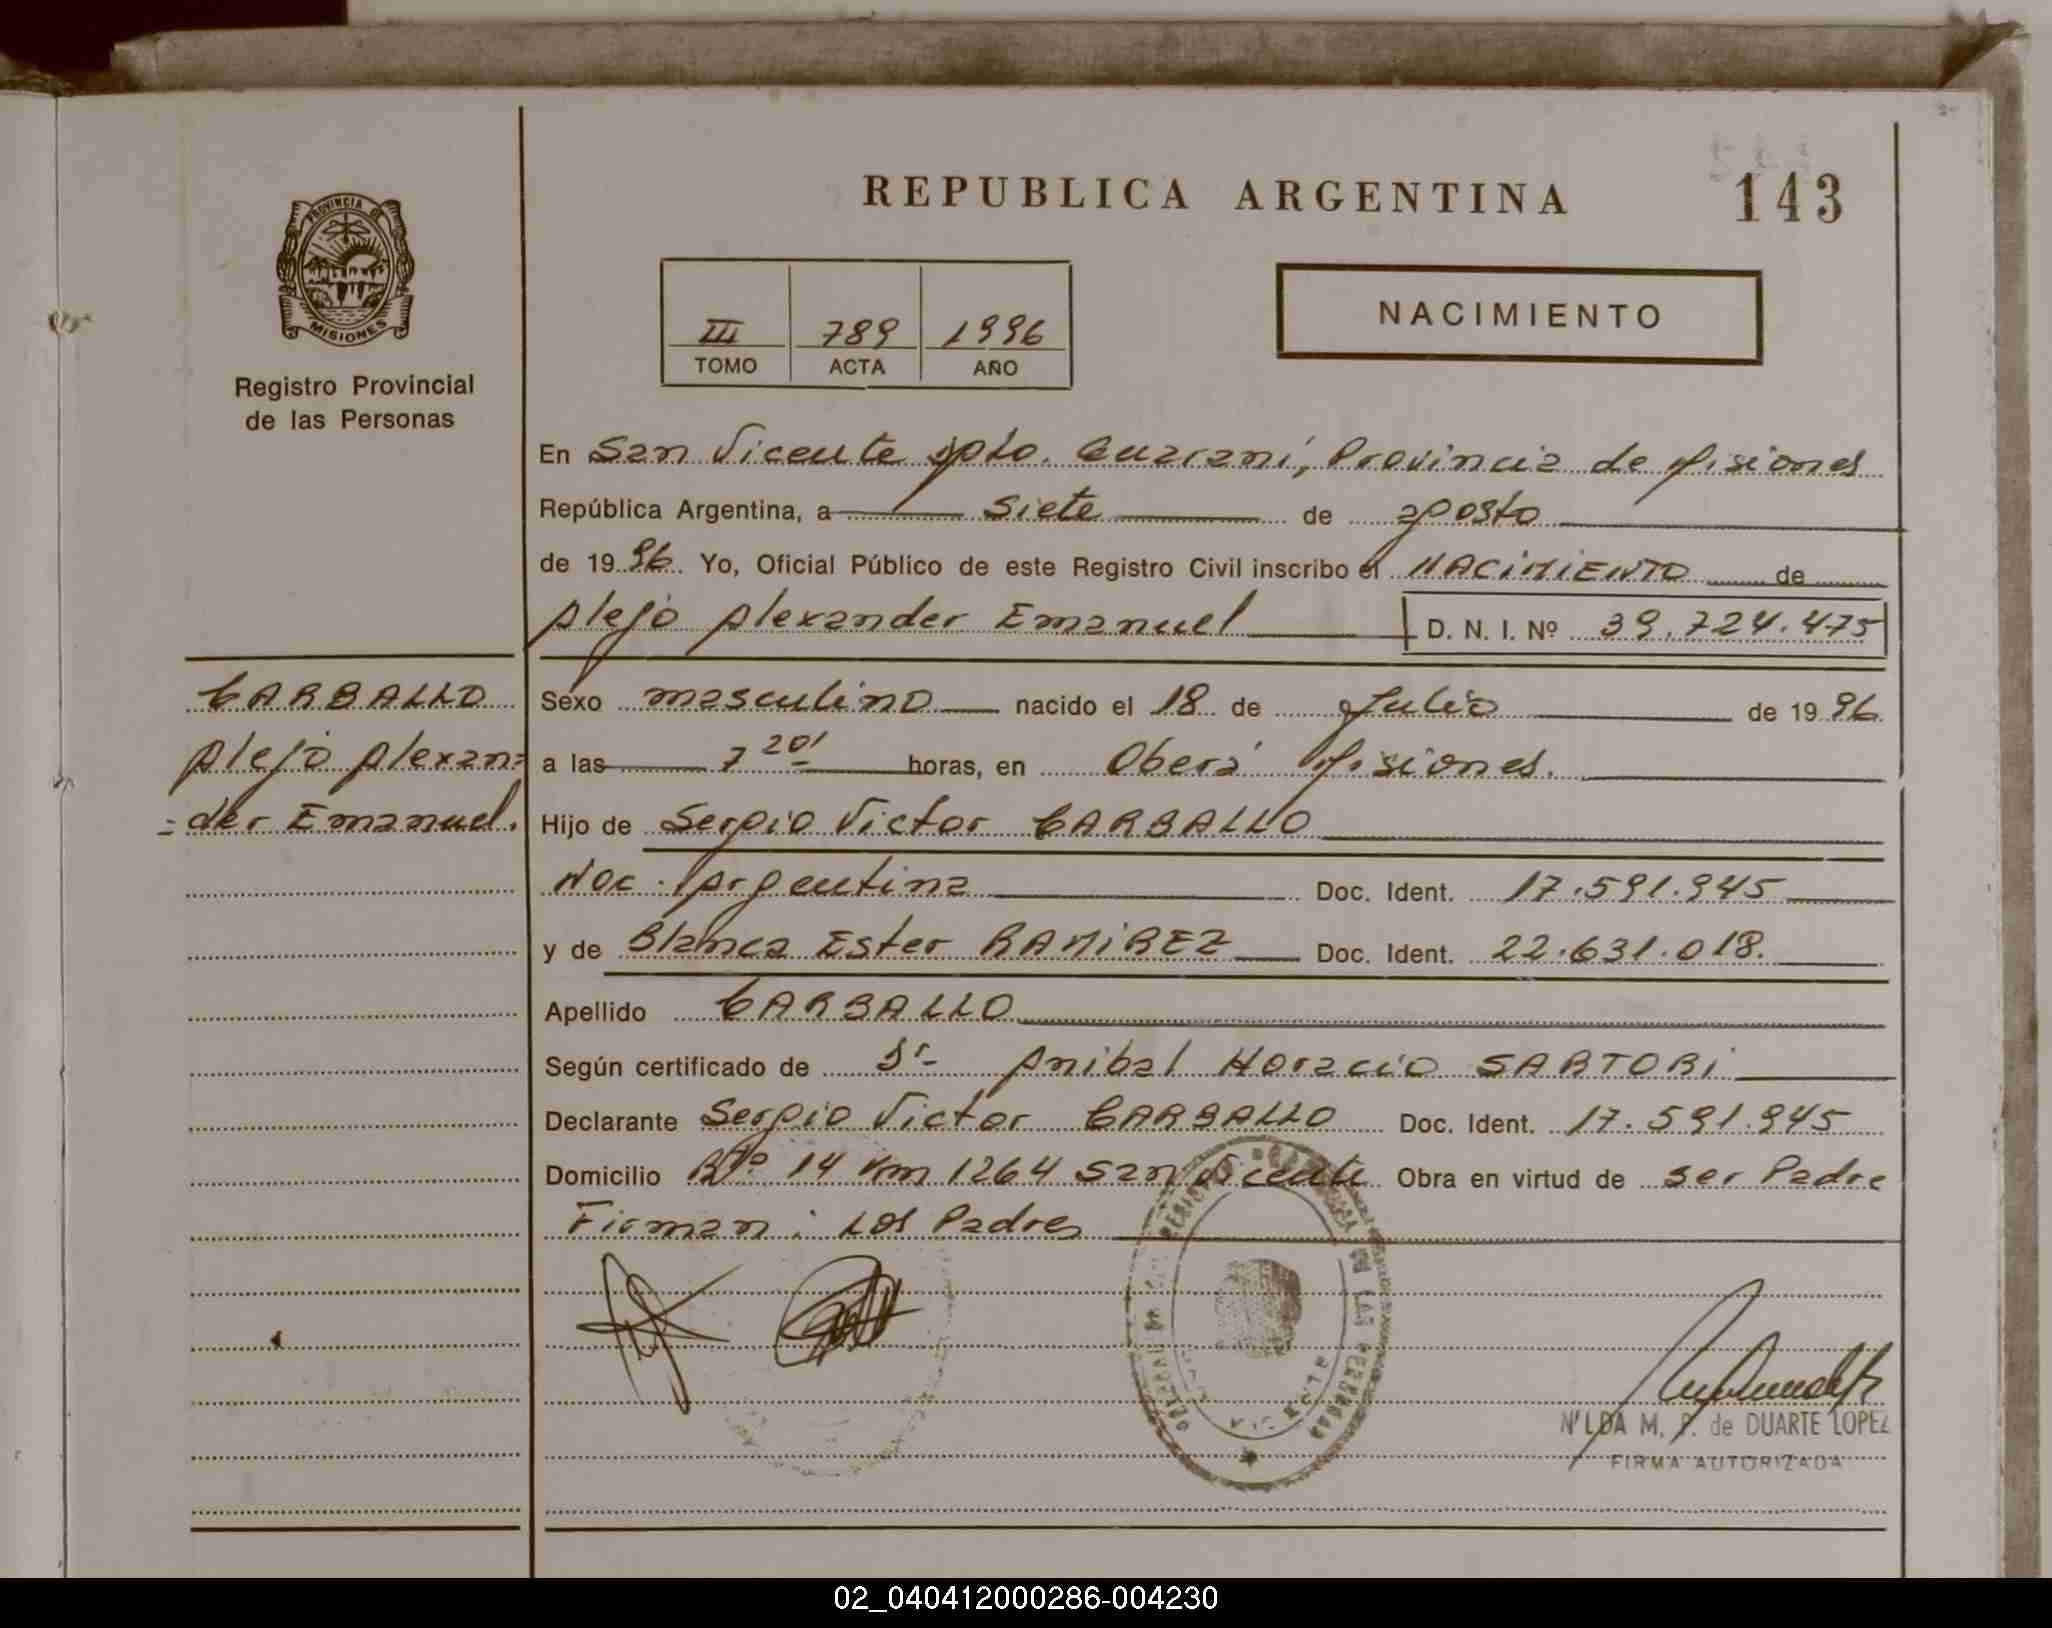 REPUBLICA ARGENTINA
143
PROVINCIA DE
MISIONES
Registro Provincial
de las Personas
III 789 1996
TOMO ACTA AÑO
NACIMIENTO
En San Vicente Dpto. Guaraní, Provincia de Misiones
República Argentina, a siete de agosto
de 1996 Yo, Oficial Público de este Registro Civil inscribo el NACIMIENTO de
Alejo Alexander Emanuel D. N. I. Nº 39.724.475
CARBALLO
Alejo Alexan=
=der Emanuel.
Sexo masculino nacido el 18 de Julio de 1996
a las 7 20' horas, en Oberá Misiones.
Hijo de Sergio Victor CARBALLO
Nac. Argentina Doc. Ident. 17.591.945
y de Blanca Ester RAMIREZ Doc. Ident. 22.631.018.
Apellido CARBALLO
Según certificado de Dr Anibal Horacio SARTORI
Declarante Sergio Victor CARBALLO Doc. Ident. 17.591.945
Domicilio Rta 14 Km 1264 San Vicente Obra en virtud de ser Padre
Firman: Los Padres
N'LDA M. P. de DUARTE LOPEZ
FIRMA AUTORIZADA
02_040412000286-004230